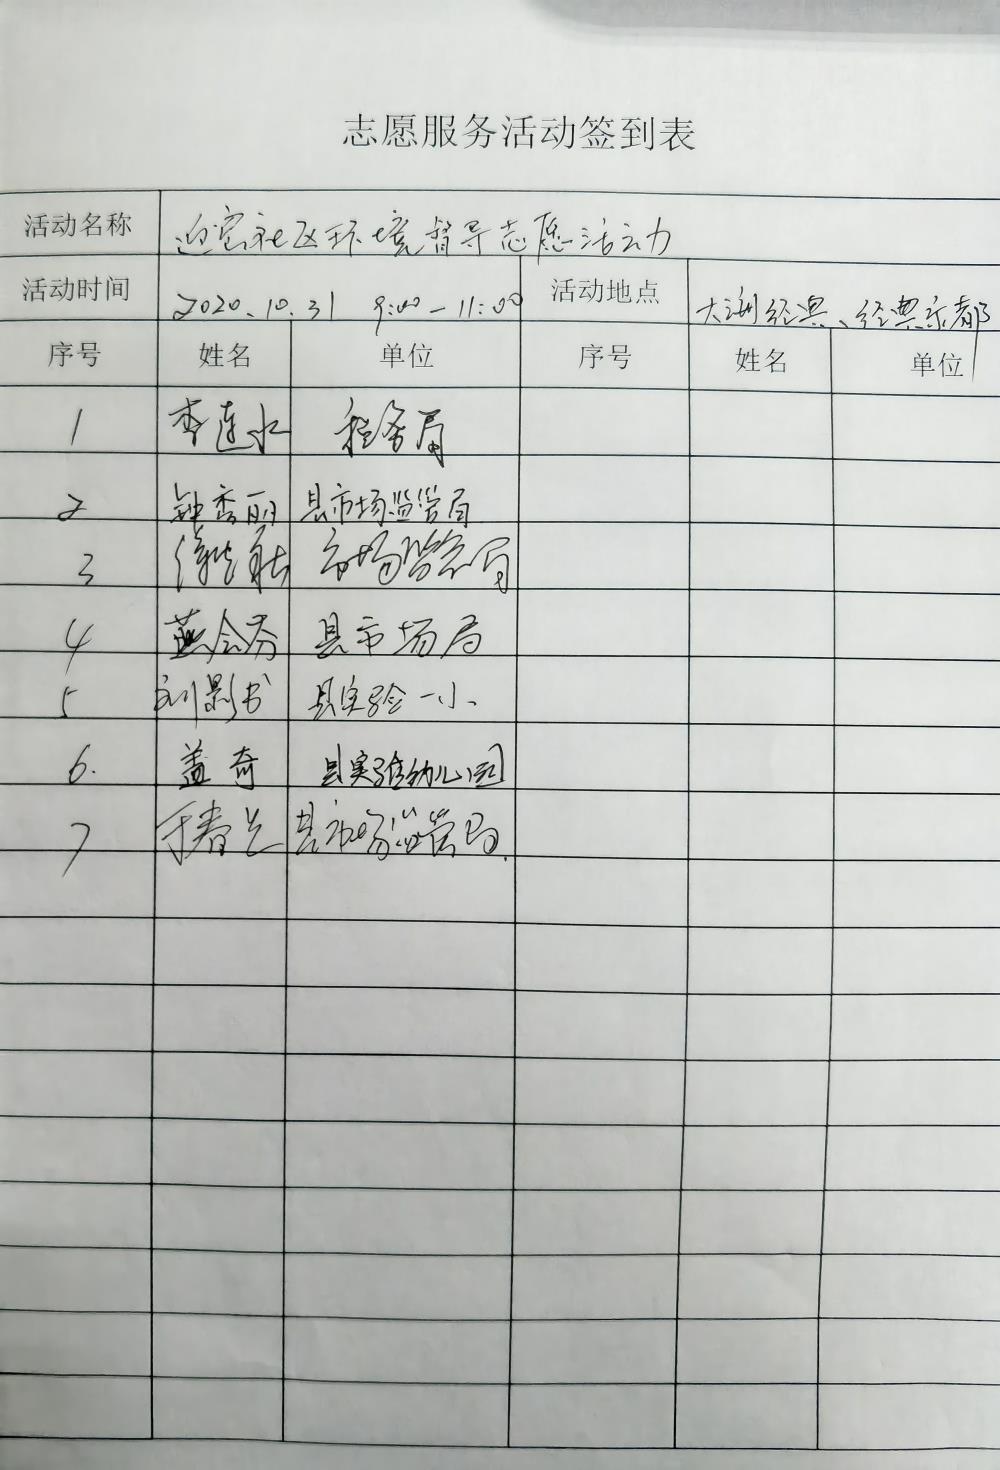 志愿服务活动签到表
活动名称 迎宾社区环境督导志愿活动
活动时间 2020.10.31 9:00-11:00 活动地点 大洲经典、经典东都
序号 姓名 单位 序号 姓名 单位
1 李连水 税务局
2 钟秀丽 县市场监管局
3 市场监管局
4 燕会芬 县市场局
5 刘影书 县实验一小
6. 盖奇 县实验幼儿园
7 于春兰 县市场监管局.